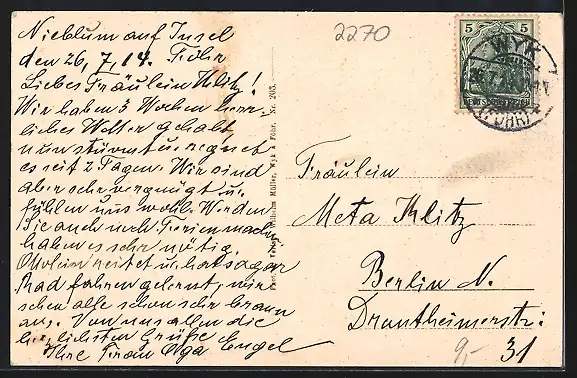 Nieblum auf Insel
den 26, 7, 14. Föhr
Liebes Fräulein Klitz!
Wir haben 3 Wochen herr-
liches Wetter gehabt
nun stürmt u. regnet
es seit 2 Tagen. Wir sind
aber sehr vergnügt u.
fühlen uns wohl. Werden
Sie auch noch Ferien machen
haben es sehr nötig.
reitet u. hat sogar
Rad fahren gelernt, wir
sehen alle schon sehr braun
aus. Von uns allen die
herzlichsten Grüße
Ihre Frau Olga Engel
Verlag Wilhelm Müller, Wyk a. Föhr. Nr. 205.
2270
5 5
DEUTSCHES REICH
WYK
26.7.14
(FÖHR)
Fräulein
Meta Klitz
Berlin N.
Drontheimerstr:
31
9,-